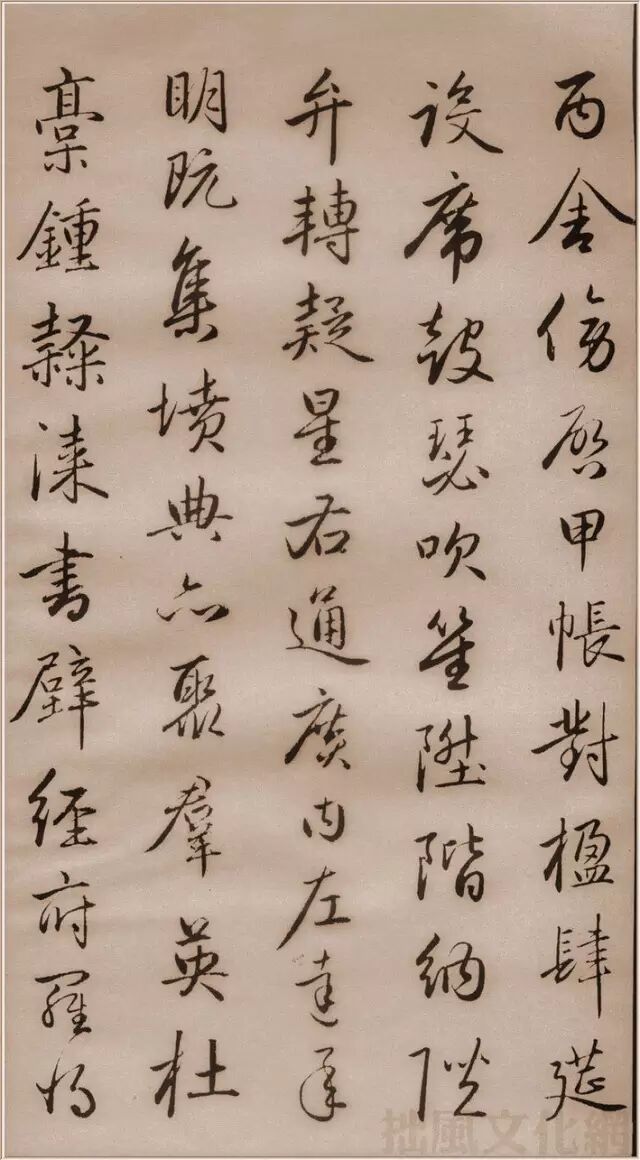 丙舍傍啓甲帳對楹肆筵
設席鼓瑟吹笙陞階納陛
弁轉疑星右通廣內左達承
明既集墳典亦聚羣英杜
槀鍾隸漆書壁經府羅將
拙風文化網